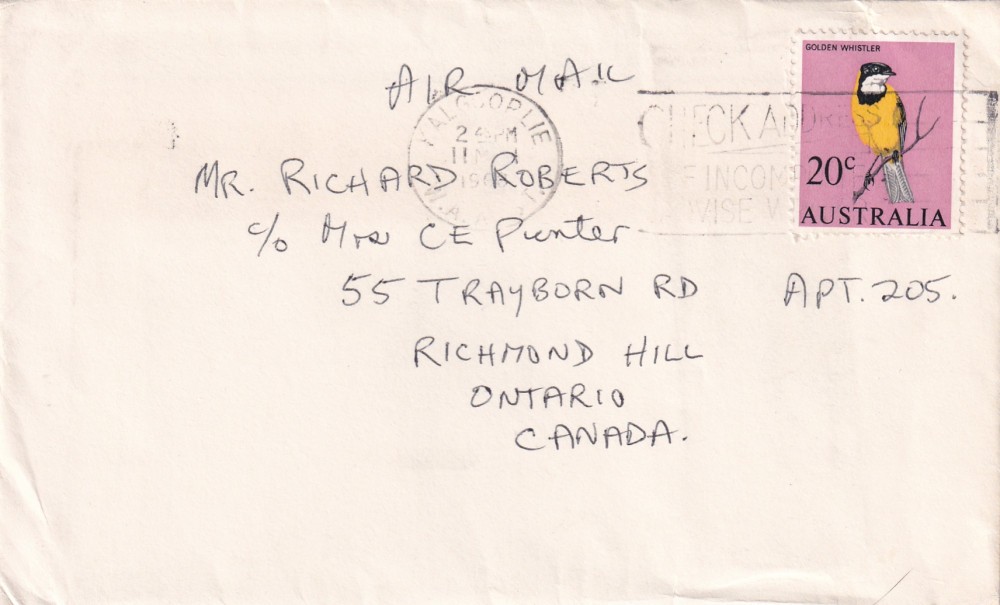 AIR MAIL
GOLDEN WHISTLER
20c
AUSTRALIA
KALGOORLIE
W.A.
CHECK ADDRESS
INCOM
WISE
MR. RICHARD ROBERTS
c/o Mrs CE Punter
55 TRAYBORN RD APT. 205.
RICHMOND HILL
ONTARIO
CANADA.